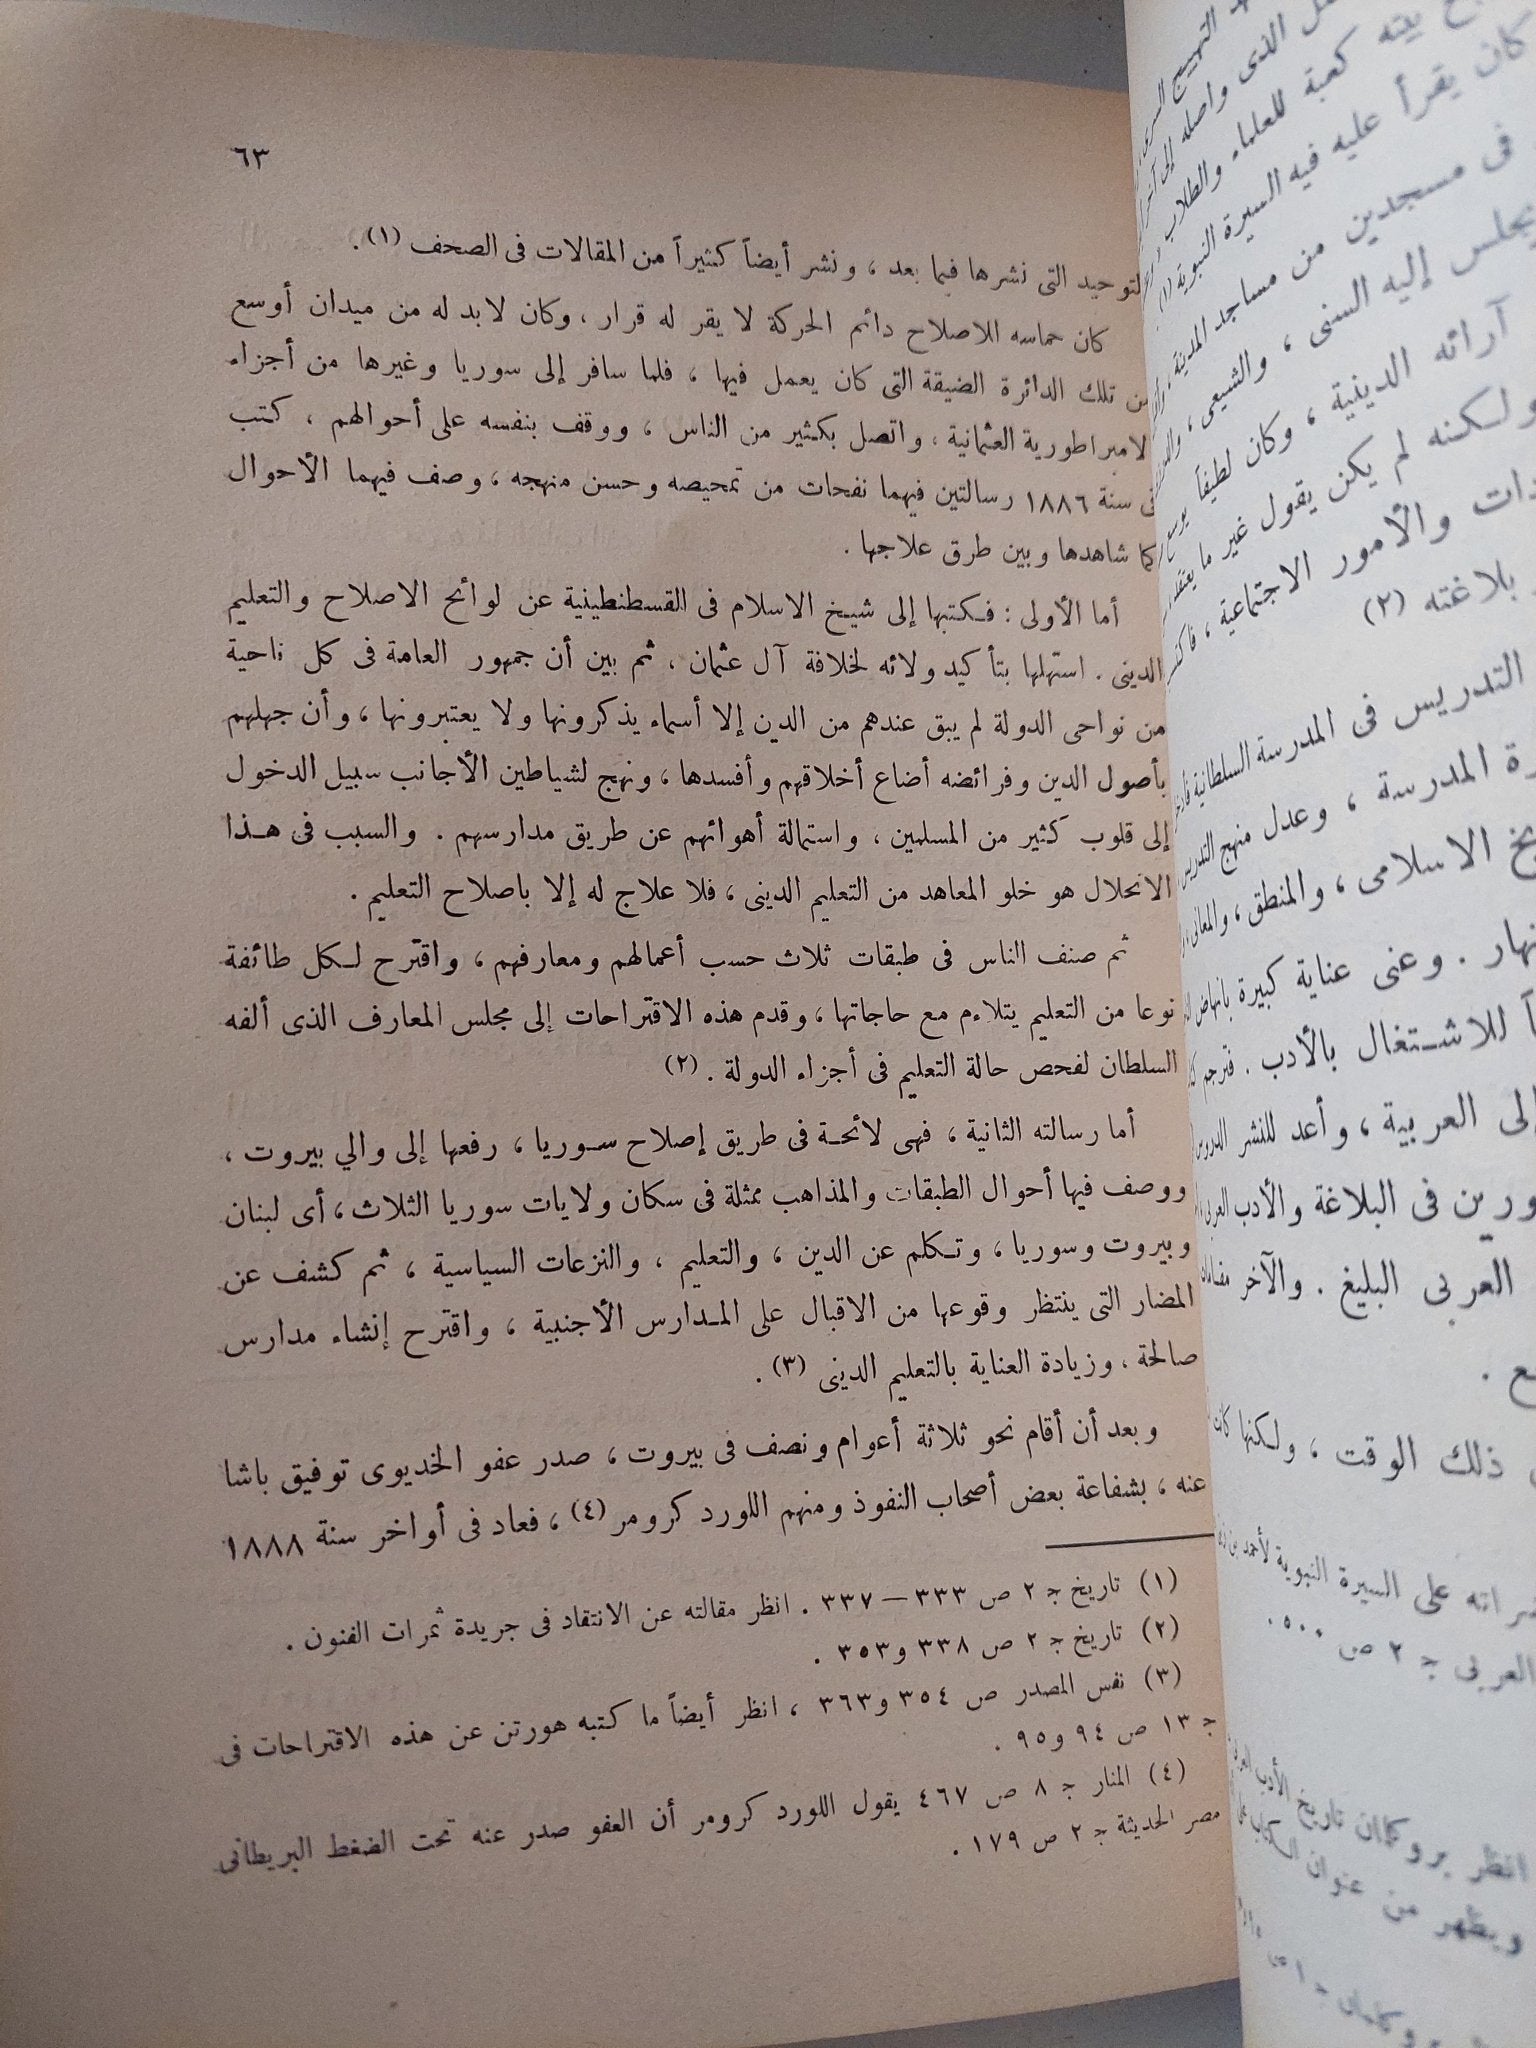 ٦٣
التوحيد التى نشرها فيما بعد ، ونشر أيضاً كثيراً من المقالات فى الصحف (١) .
كان حماسه للاصلاح دائم الحركة لا يقر له قرار ، وكان لا بد له من ميدان أوسع
من تلك الدائرة الضيقة التى كان يعمل فيها ، فلما سافر إلى سوريا وغيرها من أجزاء
الامبراطورية العثمانية ، واتصل بكثير من الناس ، ووقف بنفسه على أحوالهم ، كتب
فى سنة ١٨٨٦ رسالتين فيهما نفحات من تمحيصه وحسن منهجه ، وصف فيهما الأحوال
كما شاهدها وبين طرق علاجها .
أما الأولى : فكتبها إلى شيخ الاسلام فى القسطنطينية عن لوائح الاصلاح والتعليم
الدينى . استهلها بتأكيد ولائه لخلافة آل عثمان ، ثم بين أن جمهور العامة فى كل ناحية
من نواحى الدولة لم يبق عندهم من الدين إلا أسماء يذكرونها ولا يعتبرونها ، وأن جهلهم
بأصول الدين وفرائضه أضاع أخلاقهم وأفسدها ، ونهج لشياطين الأجانب سبيل الدخول
إلى قلوب كثير من المسلمين ، واستمالة أهوائهم عن طريق مدارسهم . والسبب فى هذا
الانحلال هو خلو المعاهد من التعليم الدينى ، فلا علاج له إلا باصلاح التعليم .
ثم صنف الناس فى طبقات ثلاث حسب أعمالهم ومعارفهم ، واقترح لكل طائفة
نوعا من التعليم يتلاءم مع حاجاتها ، وقدم هذه الاقتراحات إلى مجلس المعارف الذى ألفه
السلطان لفحص حالة التعليم فى أجزاء الدولة . (٢)
أما رسالته الثانية ، فهى لائحة فى طريق إصلاح سوريا ، رفعها إلى والي بيروت ،
ووصف فيها أحوال الطبقات والمذاهب ممثلة فى سكان ولايات سوريا الثلاث ، أى لبنان
وبيروت وسوريا ، وتكلم عن الدين ، والتعليم ، والنزعات السياسية ، ثم كشف عن
المضار التى ينتظر وقوعها من الاقبال على المدارس الأجنبية ، واقترح إنشاء مدارس
صالحة ، وزيادة العناية بالتعليم الدينى (٣) .
وبعد أن أقام نحو ثلاثة أعوام ونصف فى بيروت ، صدر عفو الخديوى توفيق باشا
عنه ، بشفاعة بعض أصحاب النفوذ ومنهم اللورد كرومر (٤) ، فعاد فى أواخر سنة ١٨٨٨
(١) تاريخ ج ٢ ص ٣٣٣ — ٣٣٧ . انظر مقالته عن الانتقاد فى جريدة ثمرات الفنون .
(٢) تاريخ ج ٢ ص ٣٣٨ و ٣٥٣ .
(٣) نفس المصدر ص ٣٥٤ و ٣٦٣ ، انظر أيضاً ما كتبه هورتن عن هذه الاقتراحات فى
ج ١٣ ص ٩٤ و ٩٥ .
(٤) المنار ج ٨ ص ٤٦٧ يقول اللورد كرومر أن العفو صدر عنه تحت الضغط البريطانى
مصر الحديثة ج ٢ ص ١٧٩ .
الذى واصله إلى
بيته كعبة للعلماء والطلاب
كان يقرأ عليه فيه السيرة النبوية (١)
فى مسجدين من مساجد المدينة ،
يجلس إليه السنى ، والشيعى ،
آرائه الدينية ، وكان لطيفاً
ولكنه لم يكن يقول غير ما يعتقد
والأمور الاجتماعية ،
بلاغته (٢)
التدريس فى المدرسة السلطانية
المدرسة ، وعدل منهج التدريس
الاسلامى ، والمنطق ، والمعانى
. وعنى عناية كبيرة بانهاض
للاشتغال بالأدب . فترجم
إلى العربية ، وأعد للنشر
فى البلاغة والأدب العربى
العربى البليغ . والآخر
ذلك الوقت ، ولكنها كانت
على السيرة النبوية لأحمد
العربى ج ٢ ص
انظر بروكلمان تاريخ الأدب
ويظهر من عنوان الكتاب